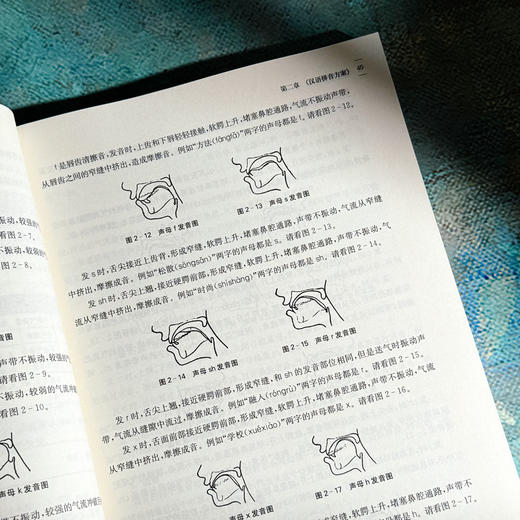 第二章 《汉语拼音方案》
45
f 是唇齿清擦音，发音时，上齿和下唇轻轻接触，软腭上升，堵塞鼻腔通路，气流不振动声带，
从唇齿之间的窄缝中挤出，造成摩擦音。例如“方法(fāngfǎ)”两字的声母都是 f。请看图 2-12。
图 2-12 声母 f 发音图
图 2-13 声母 s 发音图
发 s 时，舌尖接近上齿背，形成窄缝，软腭上升，堵塞鼻腔通路，声带不振动，气流从窄缝
中挤出，摩擦成音。例如“松散(sōngsǎn)”两字的声母都是 s。请看图 2-13。
发 sh 时，舌尖上翘，接近硬腭前部，形成窄缝，软腭上升，堵塞鼻腔通路，声带不振动，气
流从窄缝中挤出，摩擦成音。例如“时尚(shíshàng)”两字的声母都是 sh。请看图 2-14。
图 2-14 声母 sh 发音图
图 2-15 声母 r 发音图
发 r 时，舌尖上翘，接近硬腭前部，形成窄缝，和 sh 的发音部位相同，但是送气时振动声
带，气流从缝隙中流过，摩擦成音。例如“融入(róngrù)”两字的声母都是 r。请看图 2-15。
发 x 时，舌面前部接近硬腭前部，形成窄缝，软腭上升，堵塞鼻腔通路，声带不振动，气流
从窄缝中挤出，摩擦成音。例如“学校(xuéxiào)”两字的声母都是 x。请看图 2-16。
声母 x 发音图
图 2-17 声母 h 发音图
软腭上升，堵塞鼻腔通路，声带不
两字的声母都是 h。请看图 2-17。
振动，较强的气
请看图 2-7。
不振动，较强的
看图 2-8。
声带不振动，
请看图 2-9。
动，较弱的气流
图 2-10。
声母 k 发音图
不振动，较弱的气流冲破